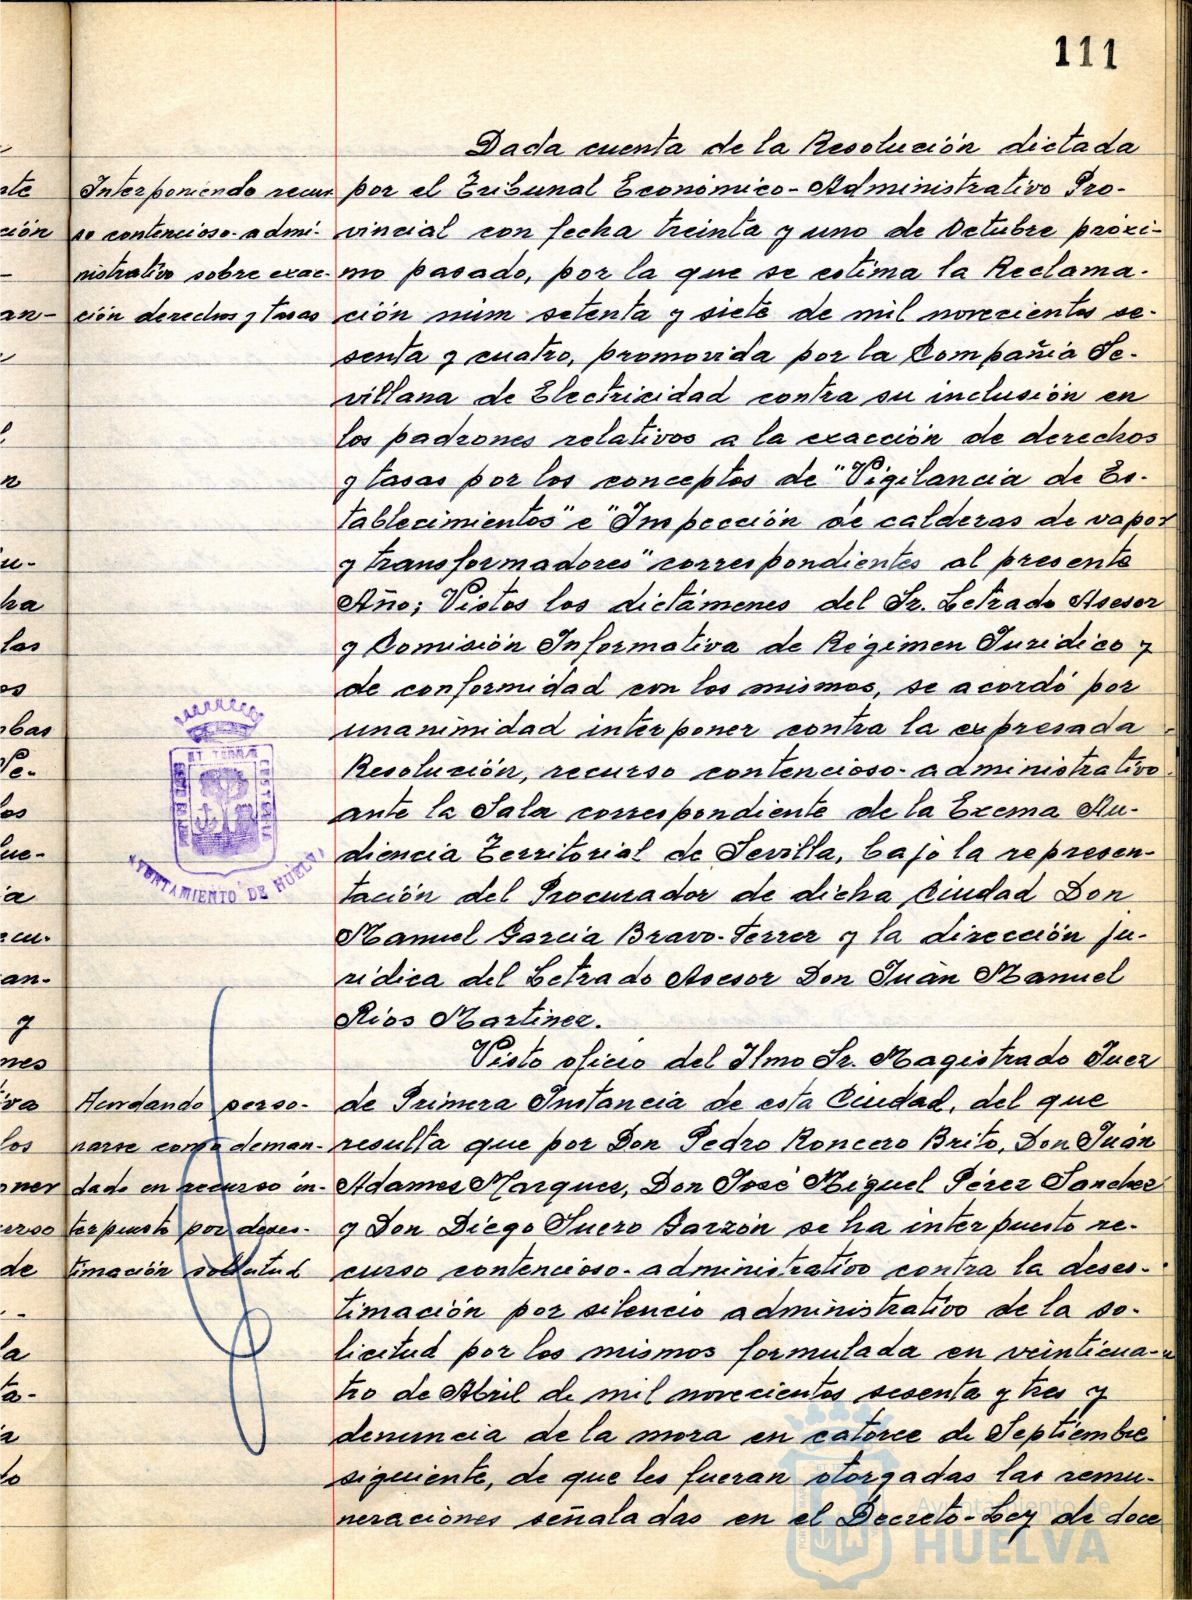 111
Dada cuenta de la Resolución dictada
Interponiendo recur-
por el Tribunal Económico-Administrativo Pro-
so contencioso-admi-
vincial con fecha treinta y uno de Octubre próxi-
nistrativo sobre exac-
mo pasado, por la que se estima la Reclama-
ción derechos y tasas
ción núm setenta y siete de mil novecientos se-
senta y cuatro, promovida por la Compañia Se-
villana de Electricidad contra su inclusión en
los padrones relativos a la exacción de derechos
y tasas por los conceptos de "Vigilancia de Es-
tablecimientos" e "Inspección de calderas de vapor
y transformadores" correspondientes al presente
Año; Vistos los dictámenes del Sr. Letrado Asesor
y Comisión Informativa de Régimen Juridico y
de conformidad con los mismos, se acordó por
unanimidad interponer contra la expresada
Resolución, recurso contencioso-administrativo
ante la Sala correspondiente de la Excma Au-
diencia Territorial de Sevilla, bajo la represen-
tación del Procurador de dicha Ciudad Don
Manuel Garcia Bravo-Ferrer y la dirección ju-
ridica del Letrado Asesor Don Juan Manuel
Rios Martinez.
AYUNTAMIENTO DE HUELVA
Visto oficio del Ilmo Sr. Magistrado Juez
Acordando perso-
de Primera Instancia de esta Ciudad, del que
narse como deman-
resulta que por Don Pedro Roncero Brito, Don Juán
dado en recurso in-
Adames Marquez, Don José Miguel Pérez Sanchez
terpuesto por deses-
y Don Diego Suero Garzón se ha interpuesto re-
timación solicitud
curso contencioso-administrativo contra la deses-
timación por silencio administrativo de la so-
licitud por los mismos formulada en veinticua-
tro de Abril de mil novecientos sesenta y tres y
denuncia de la mora en catorce de Septiembre
siguiente, de que les fueran otorgadas las remu-
neraciones señaladas en el Decreto-Ley de doce
Ayuntamiento de
HUELVA